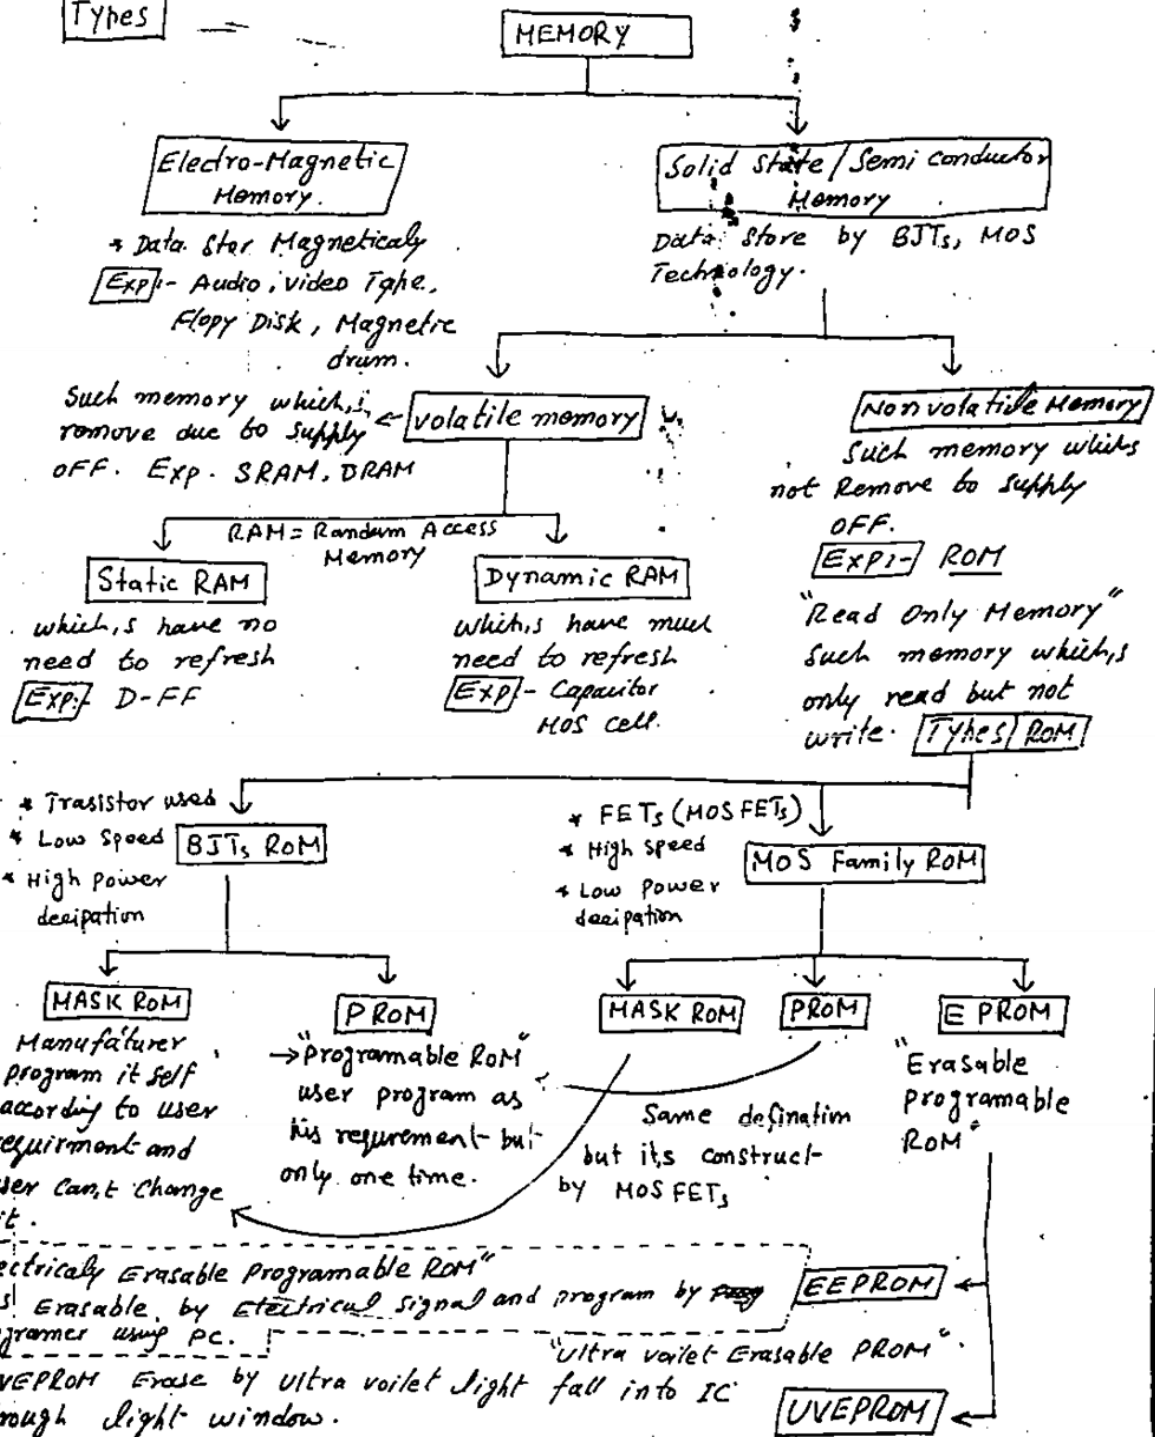 Types
MEMORY
Electro-Magnetic
Memory.
* Data Stor Magneticaly
Exp:- Audio, video Tape,
Flopy Disk, Magnetic
drum.
Solid State/Semi conductor
Memory
Data Store by BJTs, MOS
Technology.
Such memory which,s
remove due to supply
OFF. Exp. SRAM, DRAM
volatile memory
Non volatile Memory
Such memory which,s
not Remove to supply
OFF.
Exp:- ROM
"Read Only Memory"
Such memory which,s
only read but not
write. Types ROM
RAM = Random Access
Memory
Static RAM
which,s have no
need to refresh
Exp:- D-FF
Dynamic RAM
which,s have must
need to refresh
Exp:- Capacitor
MOS cell.
* Trasistor used
* Low Speed
* High power
decipation
BJTs ROM
* FETs (MOSFETs)
* High speed
* Low power
decipation
MOS Family ROM
MASK ROM
Manufaturer
program it self
according to user
equirment and
ser can,t change
it.
PROM
"Programable ROM"
user program as
his requrement but
only one time.
MASK ROM
PROM
Same defination
but it,s construct
by MOSFETs
E PROM
"Erasable
programable
ROM"
ectricaly Erasable Programable ROM"
s Erasable by Electrical signal and program by
gramer using PC.
EEPROM
"Ultra voilet Erasable PROM"
VEPROM Erase by Ultra voilet light fall into IC
rough light window.
UVEPROM